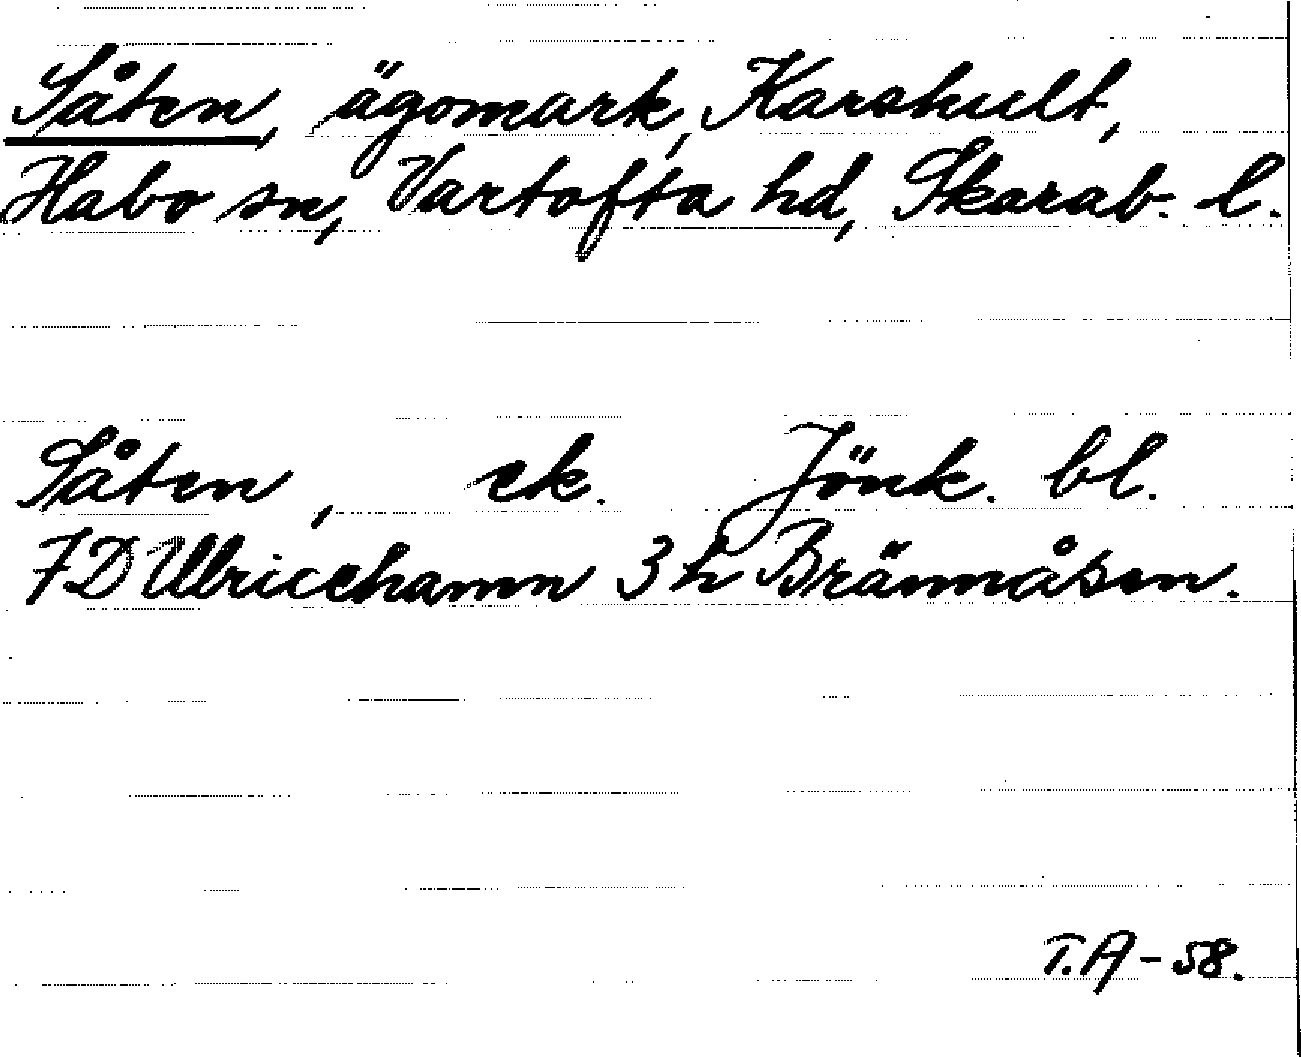 Såten, ägomark, Karshult,
Habo sn, Vartofta hd, Skarab. l.
Såten, ek. Jönk. bl.
7D Ulricehamn 3 h Brännåsen.
T.A-58.